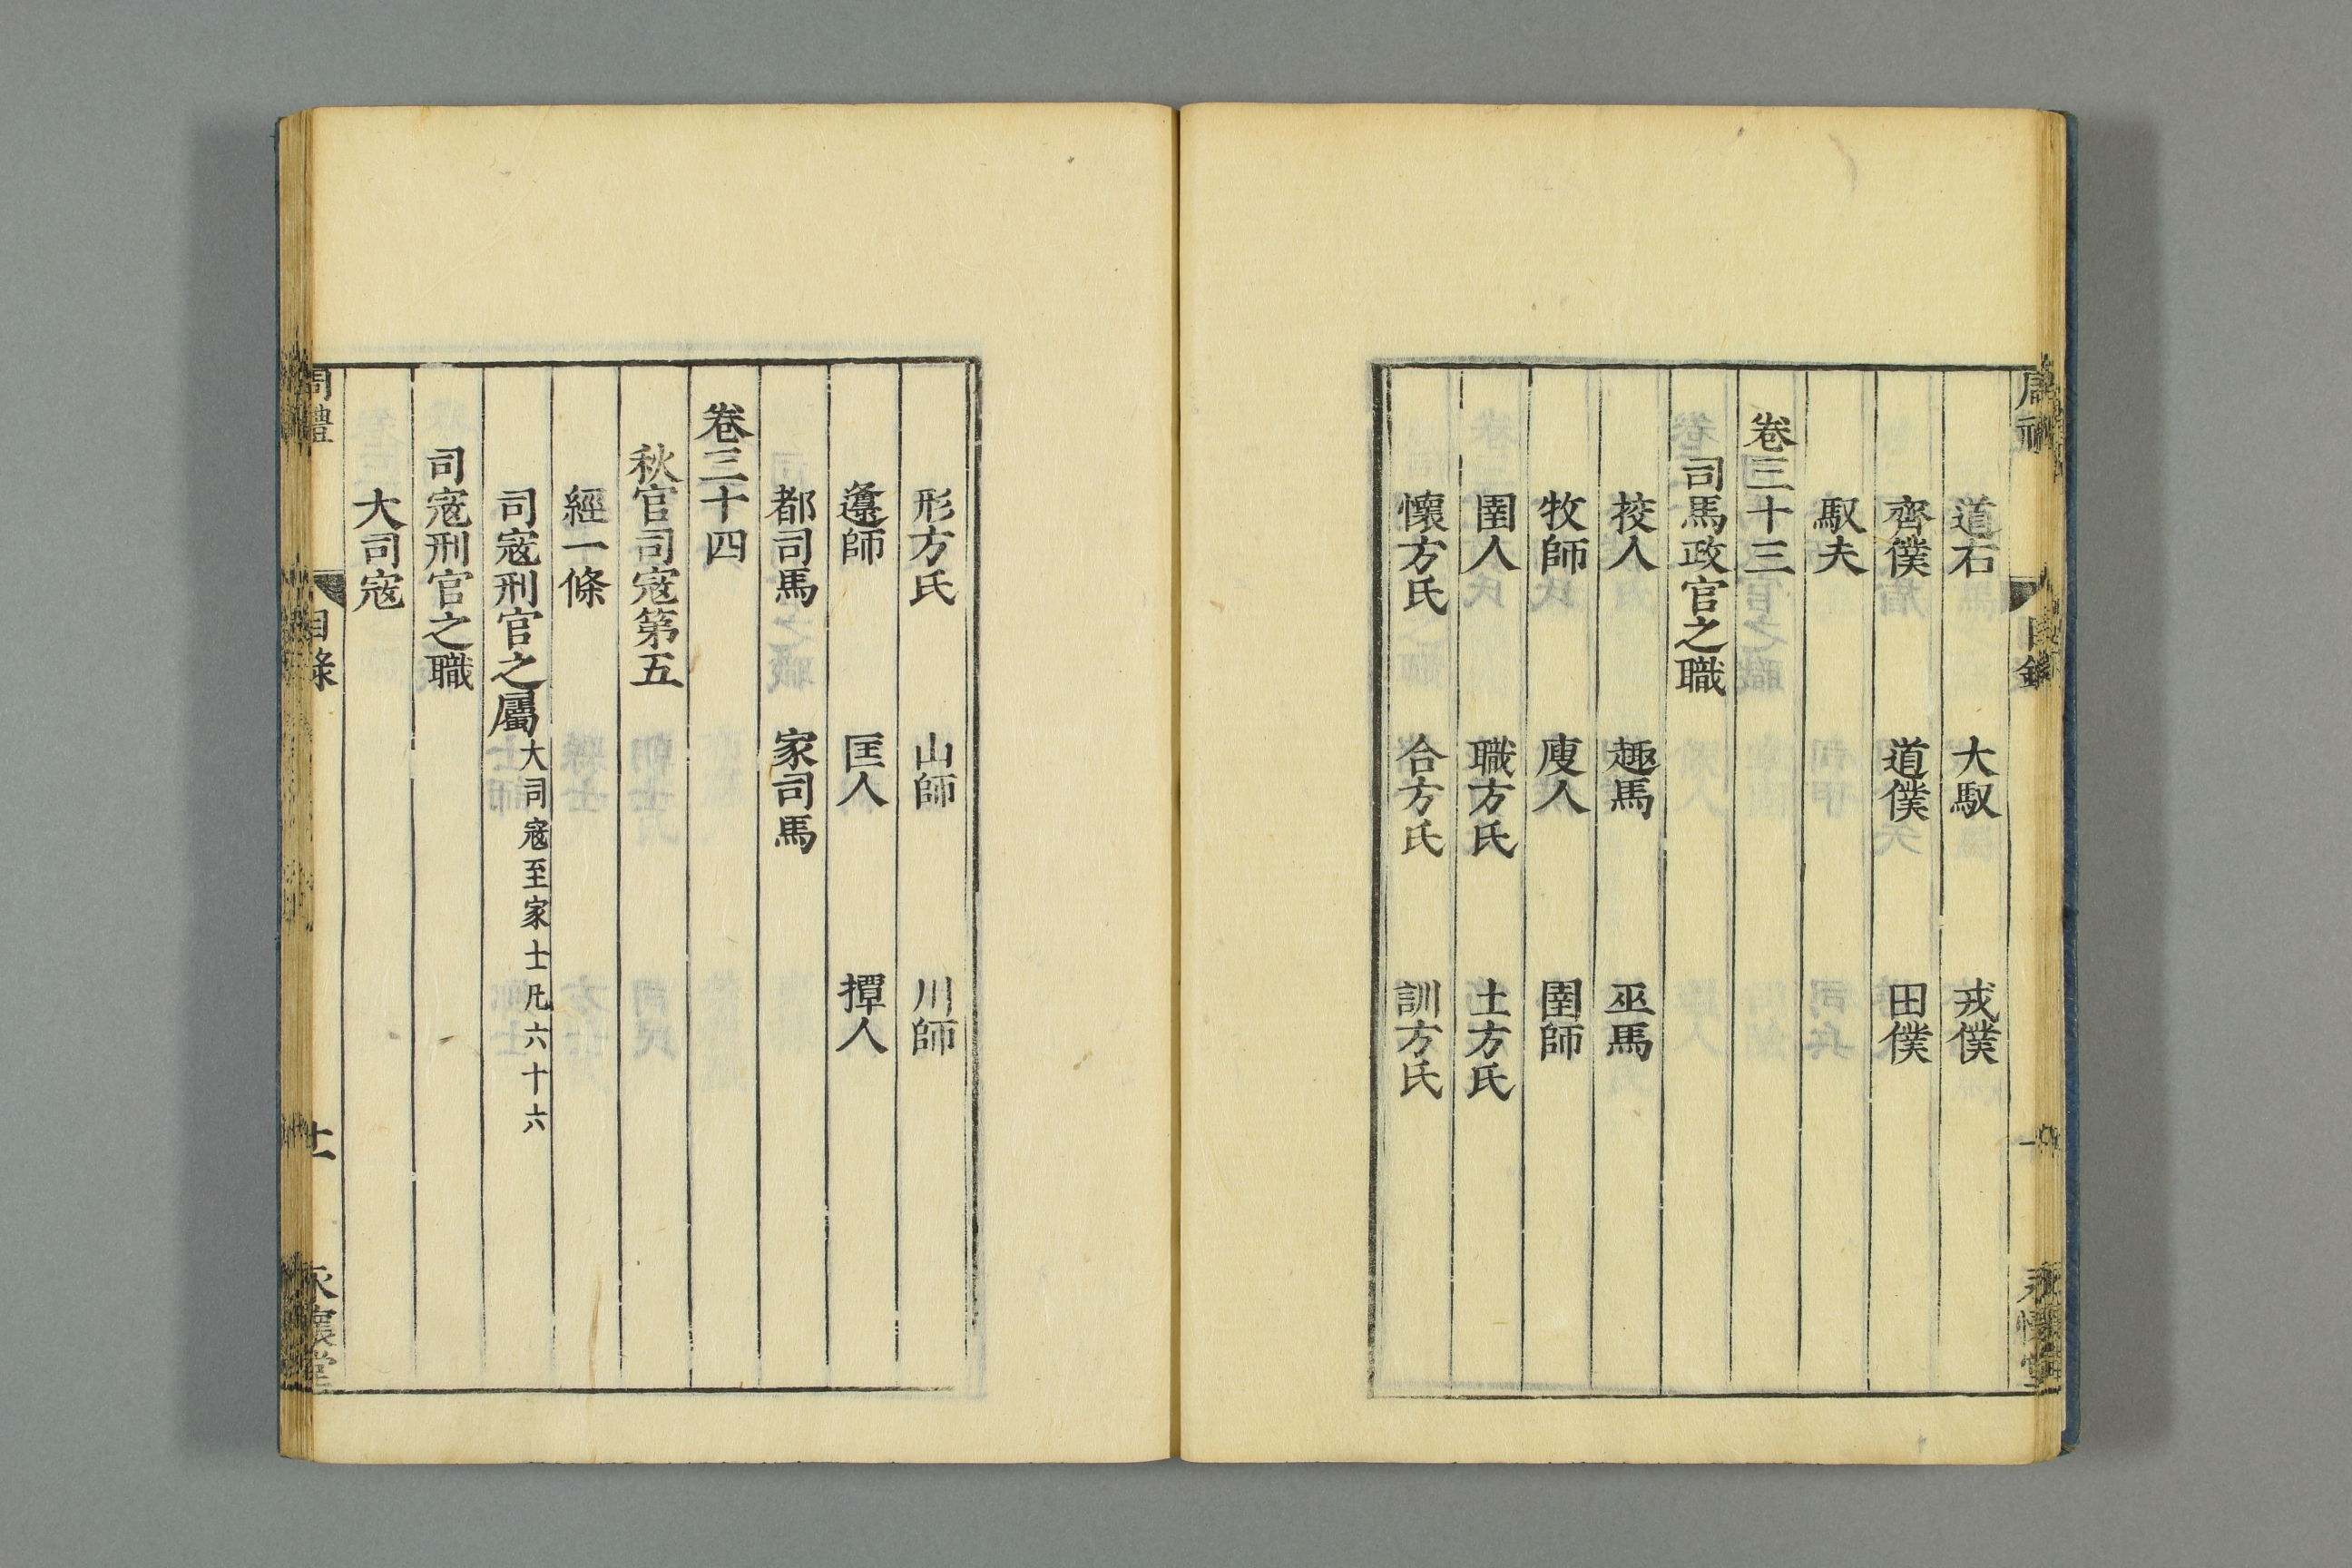 道右　大馭　戎僕
齊僕　道僕　田僕
馭夫
卷三十三
司馬政官之職
挍人　趣馬　巫馬
牧師　廋人　圉師
圉人　職方氏　土方氏
懷方氏　合方氏　訓方氏
形方氏　山師　川師
邍師　匡人　撢人
都司馬　家司馬
卷三十四
秋官司寇第五
經一條
司寇刑官之屬大司寇至家士凡六十六
司寇刑官之職
大司寇
周禮　目錄　十一　永懷堂